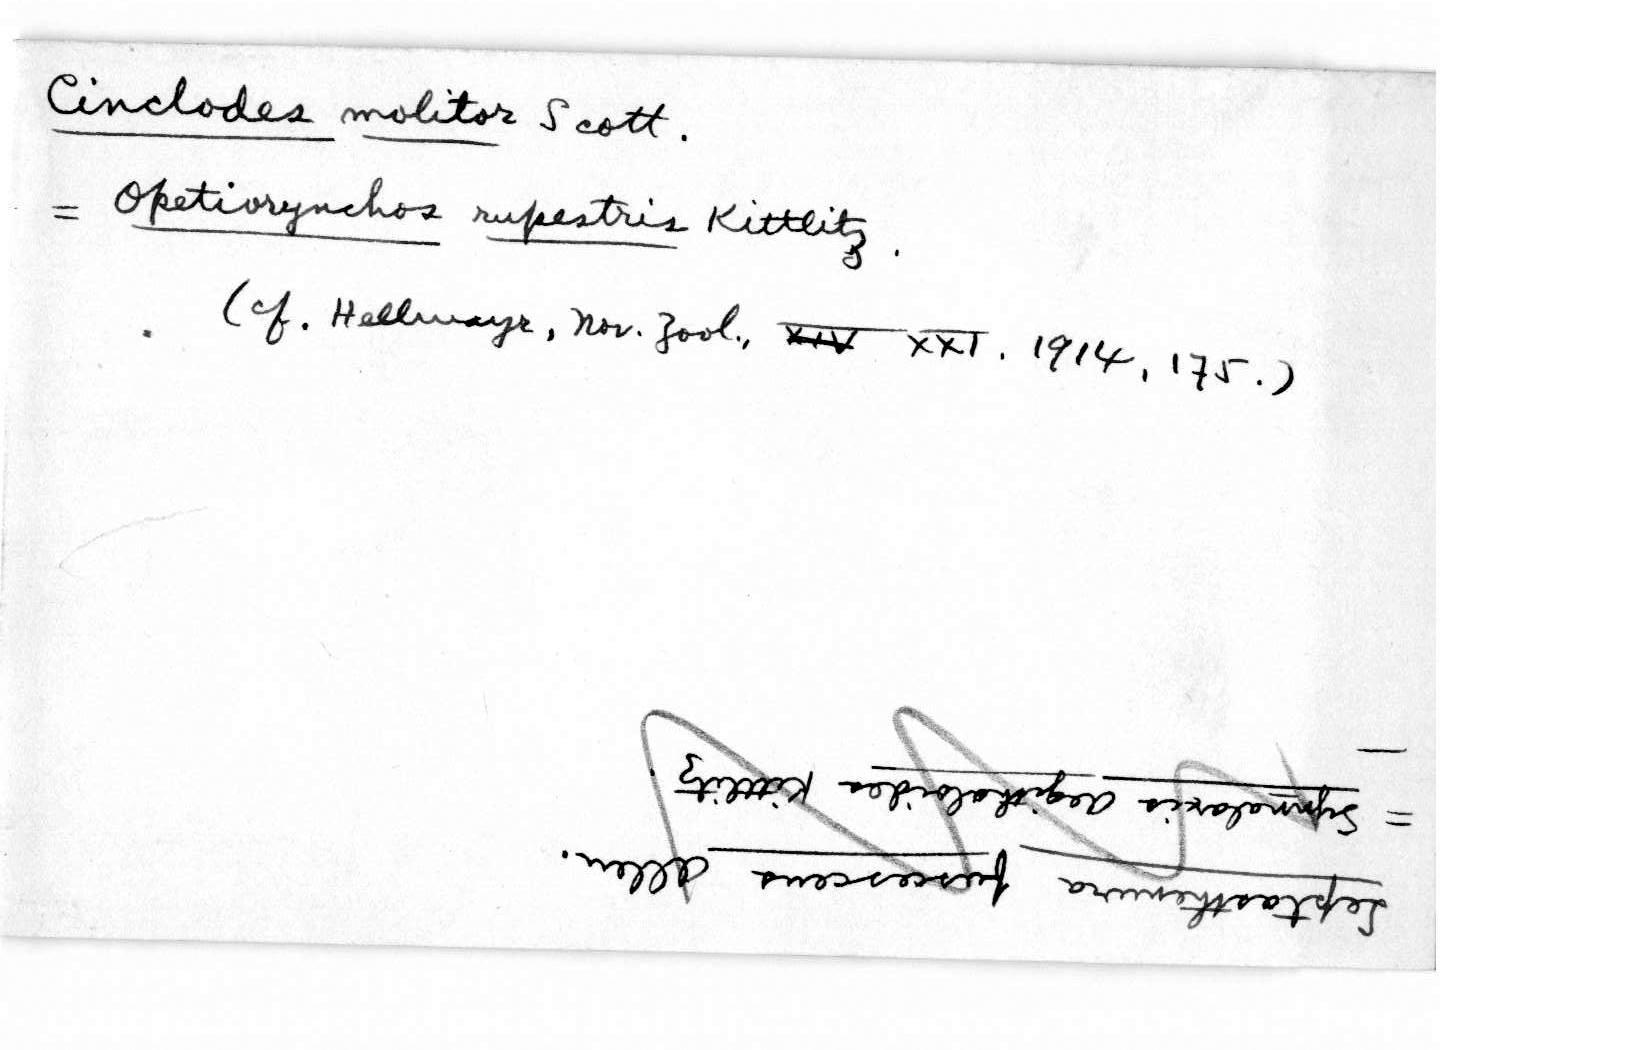 Cinclodes molitor Scott.
= Opetiorynchos rupestris Kittlitz.
(cf. Hellmayr, Nov. Zool., XIV XXI. 1914, 175.)
Leptasthenura fuscescens Allen.
= Synnalaxis aegithaloides Kittlitz.